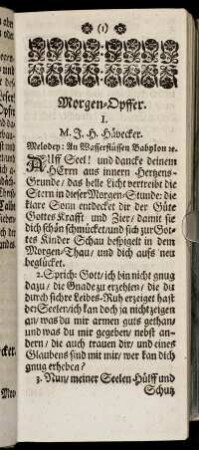 (1)
Morgen-Opffer.
I.
M. J. H. Hävecker.
Melodey: An Wasserflüssen Babylon ꝛc.
AUff Seel! und dancke deinem
HErrn aus innern Hertzens-
Grunde/ das helle Licht vertreibt die
Stern in dieser Morgen-Stunde: die
klare Sonn entdecket dir der Güte
Gottes Krafft und Zier/ damit sie
dich schön schmücket/ und sich zur Got-
tes Kinder Schau bespigelt in dem
Morgen-Thau/ und dich aufs neu
beglücket.
2. Sprich: Gott/ ich bin nicht gnug
dazu/ die Gnade zu erzehlen/ die du
durch sichre Leibes-Ruh erzeiget hast
der Seelen/ ich kan doch ja nicht zeigen
an/ was du mir armen guts gethan/
und was du mir gegeben/ nebst an-
dern/ die auch trauen dir/ und eines
Glaubens sind mit mir/ wer kan dich
gnug erheben?
3. Nun/ meiner Seelen Hülff und
Schutz